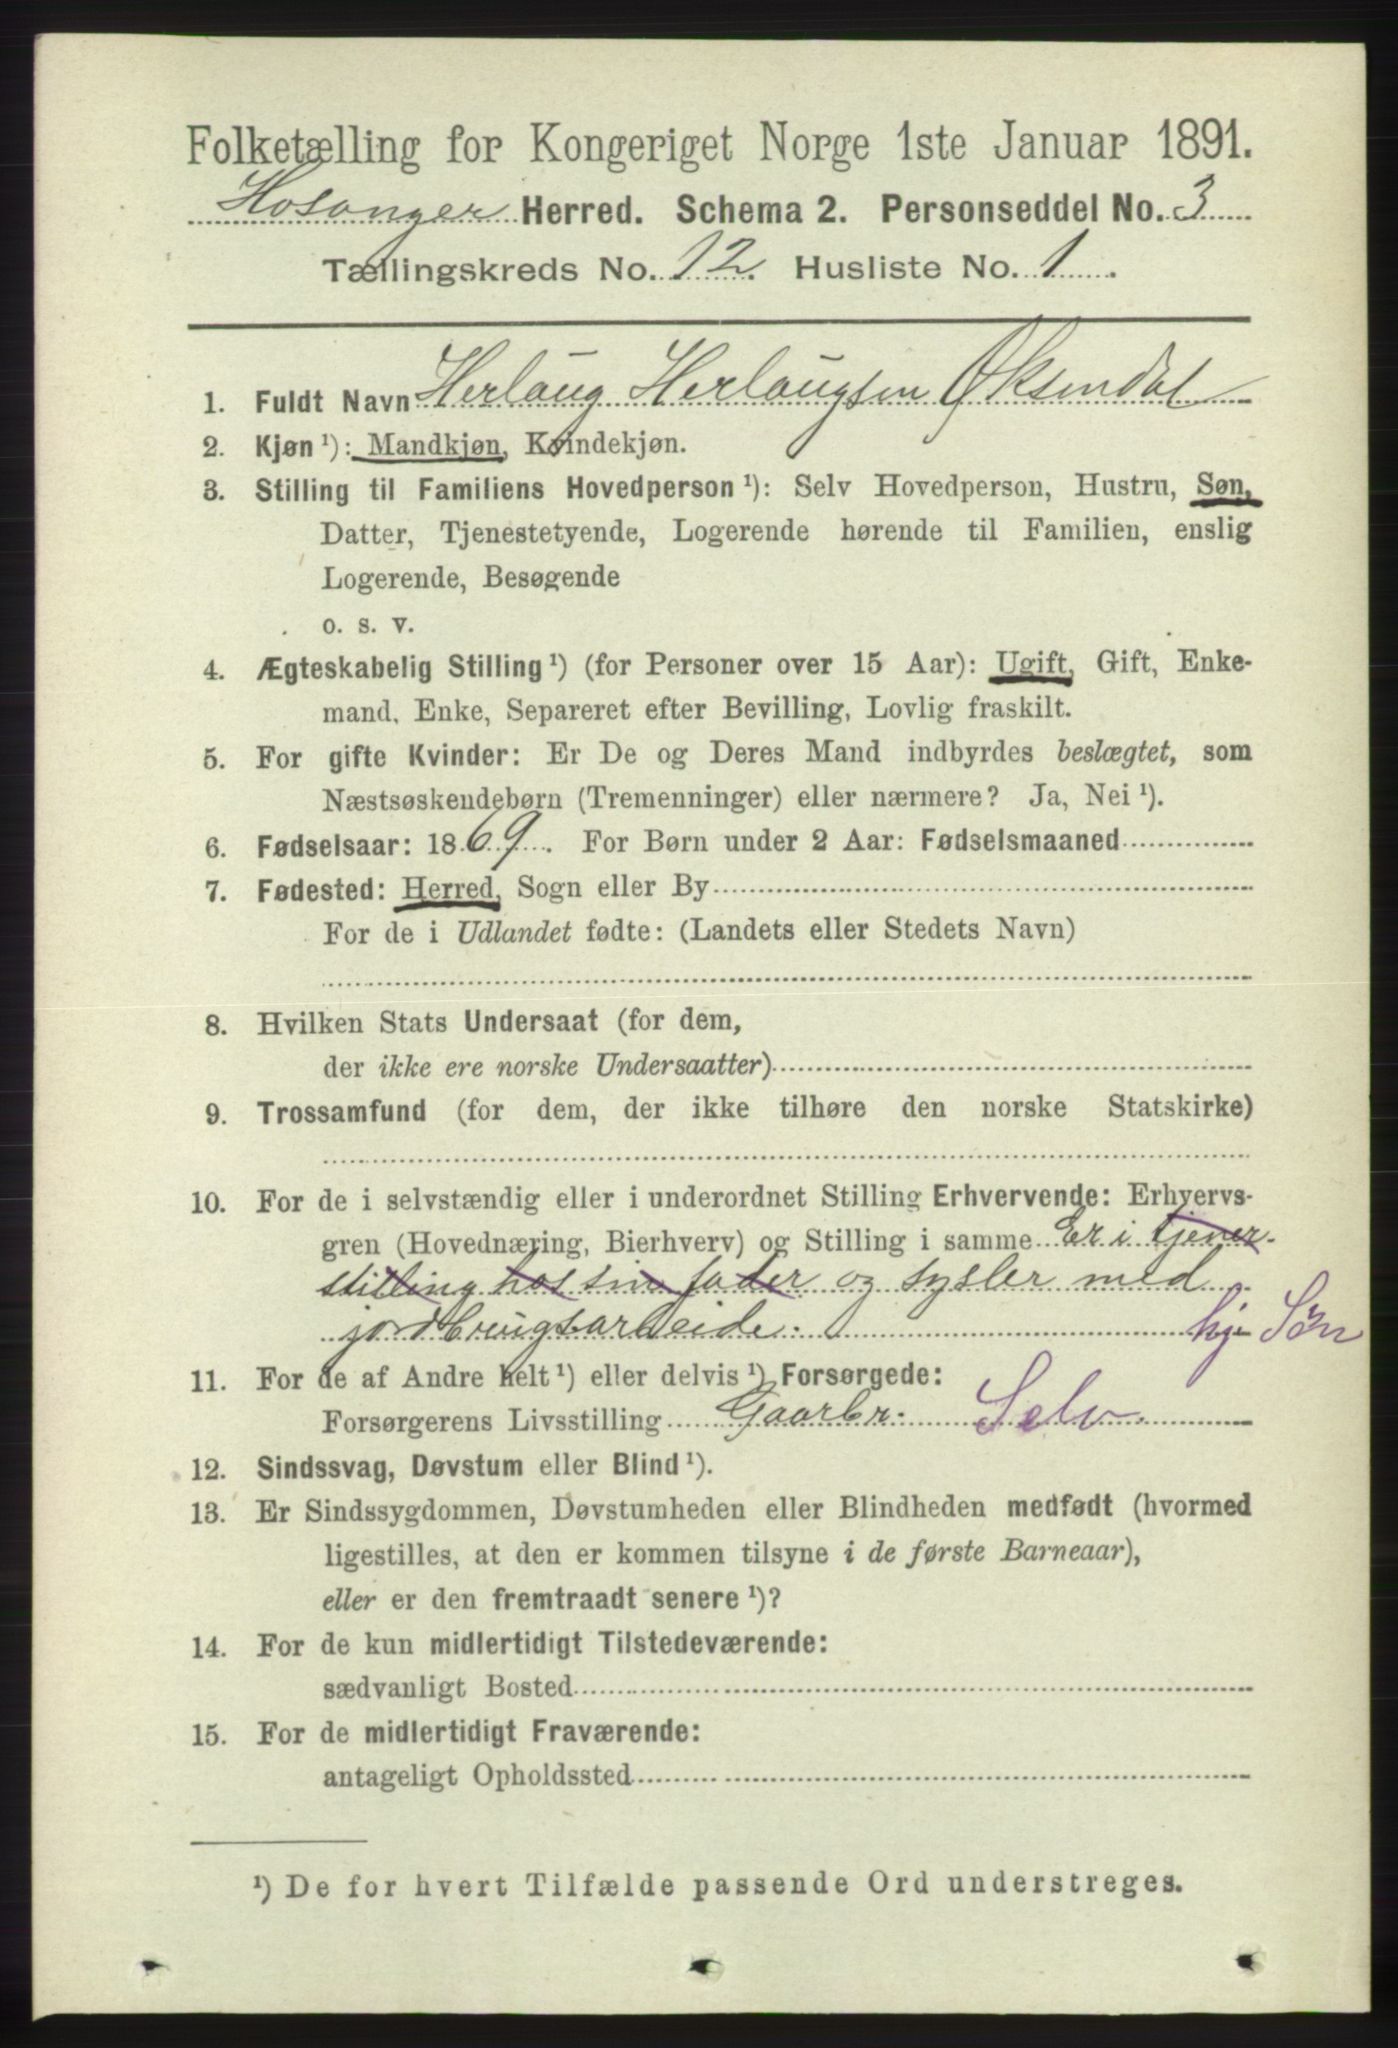 Folketælling for Kongeriget Norge 1ste Januar 1891.
Hosanger Herred. Schema 2. Personseddel No. 3
Tællingskreds No. 12. Husliste No. 1
1. Fuldt Navn Herlaug Herlaugsen Øksendal
2. Kjøn ¹): Mandkjøn, Kvindekjøn.
3. Stilling til Familiens Hovedperson ¹): Selv Hovedperson, Hustru, Søn,
Datter, Tjenestetyende, Logerende hørende til Familien, enslig
Logerende, Besøgende
o. s. v.
4. Ægteskabelig Stilling ¹) (for Personer over 15 Aar): Ugift, Gift, Enke-
mand, Enke, Separeret efter Bevilling, Lovlig fraskilt.
5. For gifte Kvinder: Er De og Deres Mand indbyrdes beslægtet, som
Næstsøskendebørn (Tremenninger) eller nærmere? Ja, Nei ¹).
6. Fødselsaar: 1869. For Børn under 2 Aar: Fødselsmaaned
7. Fødested: Herred, Sogn eller By
For de i Udlandet fødte: (Landets eller Stedets Navn)
8. Hvilken Stats Undersaat (for dem,
der ikke ere norske Undersaatter)
9. Trossamfund (for dem, der ikke tilhøre den norske Statskirke)
10. For de i selvstændig eller i underordnet Stilling Erhvervende: Erhvervs-
gren (Hovednæring, Bierhverv) og Stilling i samme Er i tjener-
stilling hos sin fader og sysler med
jordbrugsarbeide. hj. Søn
11. For de af Andre helt ¹) eller delvis ¹) Forsørgede:
Forsørgerens Livsstilling Gaarbr. Selv.
12. Sindssvag, Døvstum eller Blind ¹).
13. Er Sindssygdommen, Døvstumheden eller Blindheden medfødt (hvormed
ligestilles, at den er kommen tilsyne i de første Barneaar),
eller er den fremtraadt senere ¹)?
14. For de kun midlertidigt Tilstedeværende:
sædvanligt Bosted
15. For de midlertidigt Fraværende:
antageligt Opholdssted
¹) De for hvert Tilfælde passende Ord understreges.